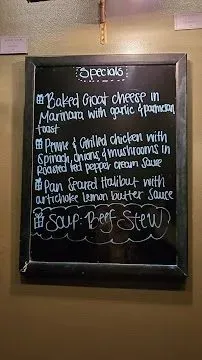 Specials
Baked Goat cheese in
Marinara with garlic & parmesan
toast
Penne & Grilled Chicken with
Spinach, onions & mushrooms in
Roasted Red pepper cream sauce
Pan Seared Halibut with
artichoke Lemon butter sauce
Soup: Beef Stew